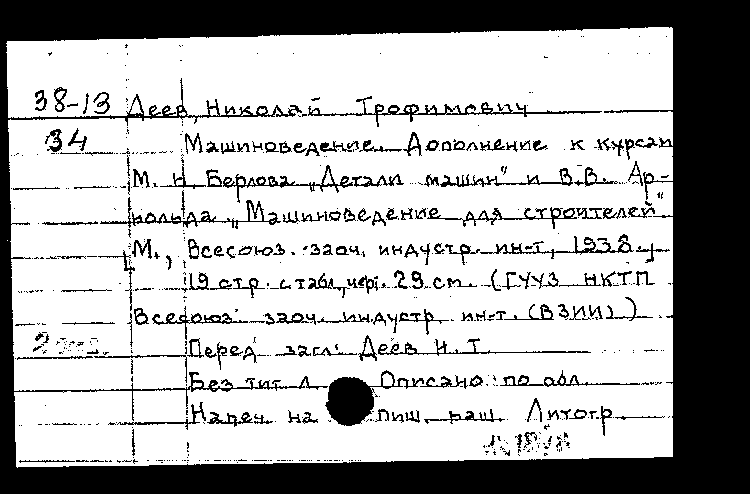 38-13 Деев, Николай Трофимович
34 Машиноведение. Дополнение к курсам
М. Н. Берлова „Детали машин" и В.В. Ар-
нольда „Машиноведение для строителей".
[М., Всесоюз. заоч. индустр. ин-т, 1938.]
19 стр. с табл., черт. 29 см. (ГУУЗ НКТП
Всесоюз. заоч. индустр. ин-т. (ВЗИИ))
2 Перед загл: Деев Н. Т.
Без тит. л. Описано по обл.
Напеч. на пиш. маш. Литогр.